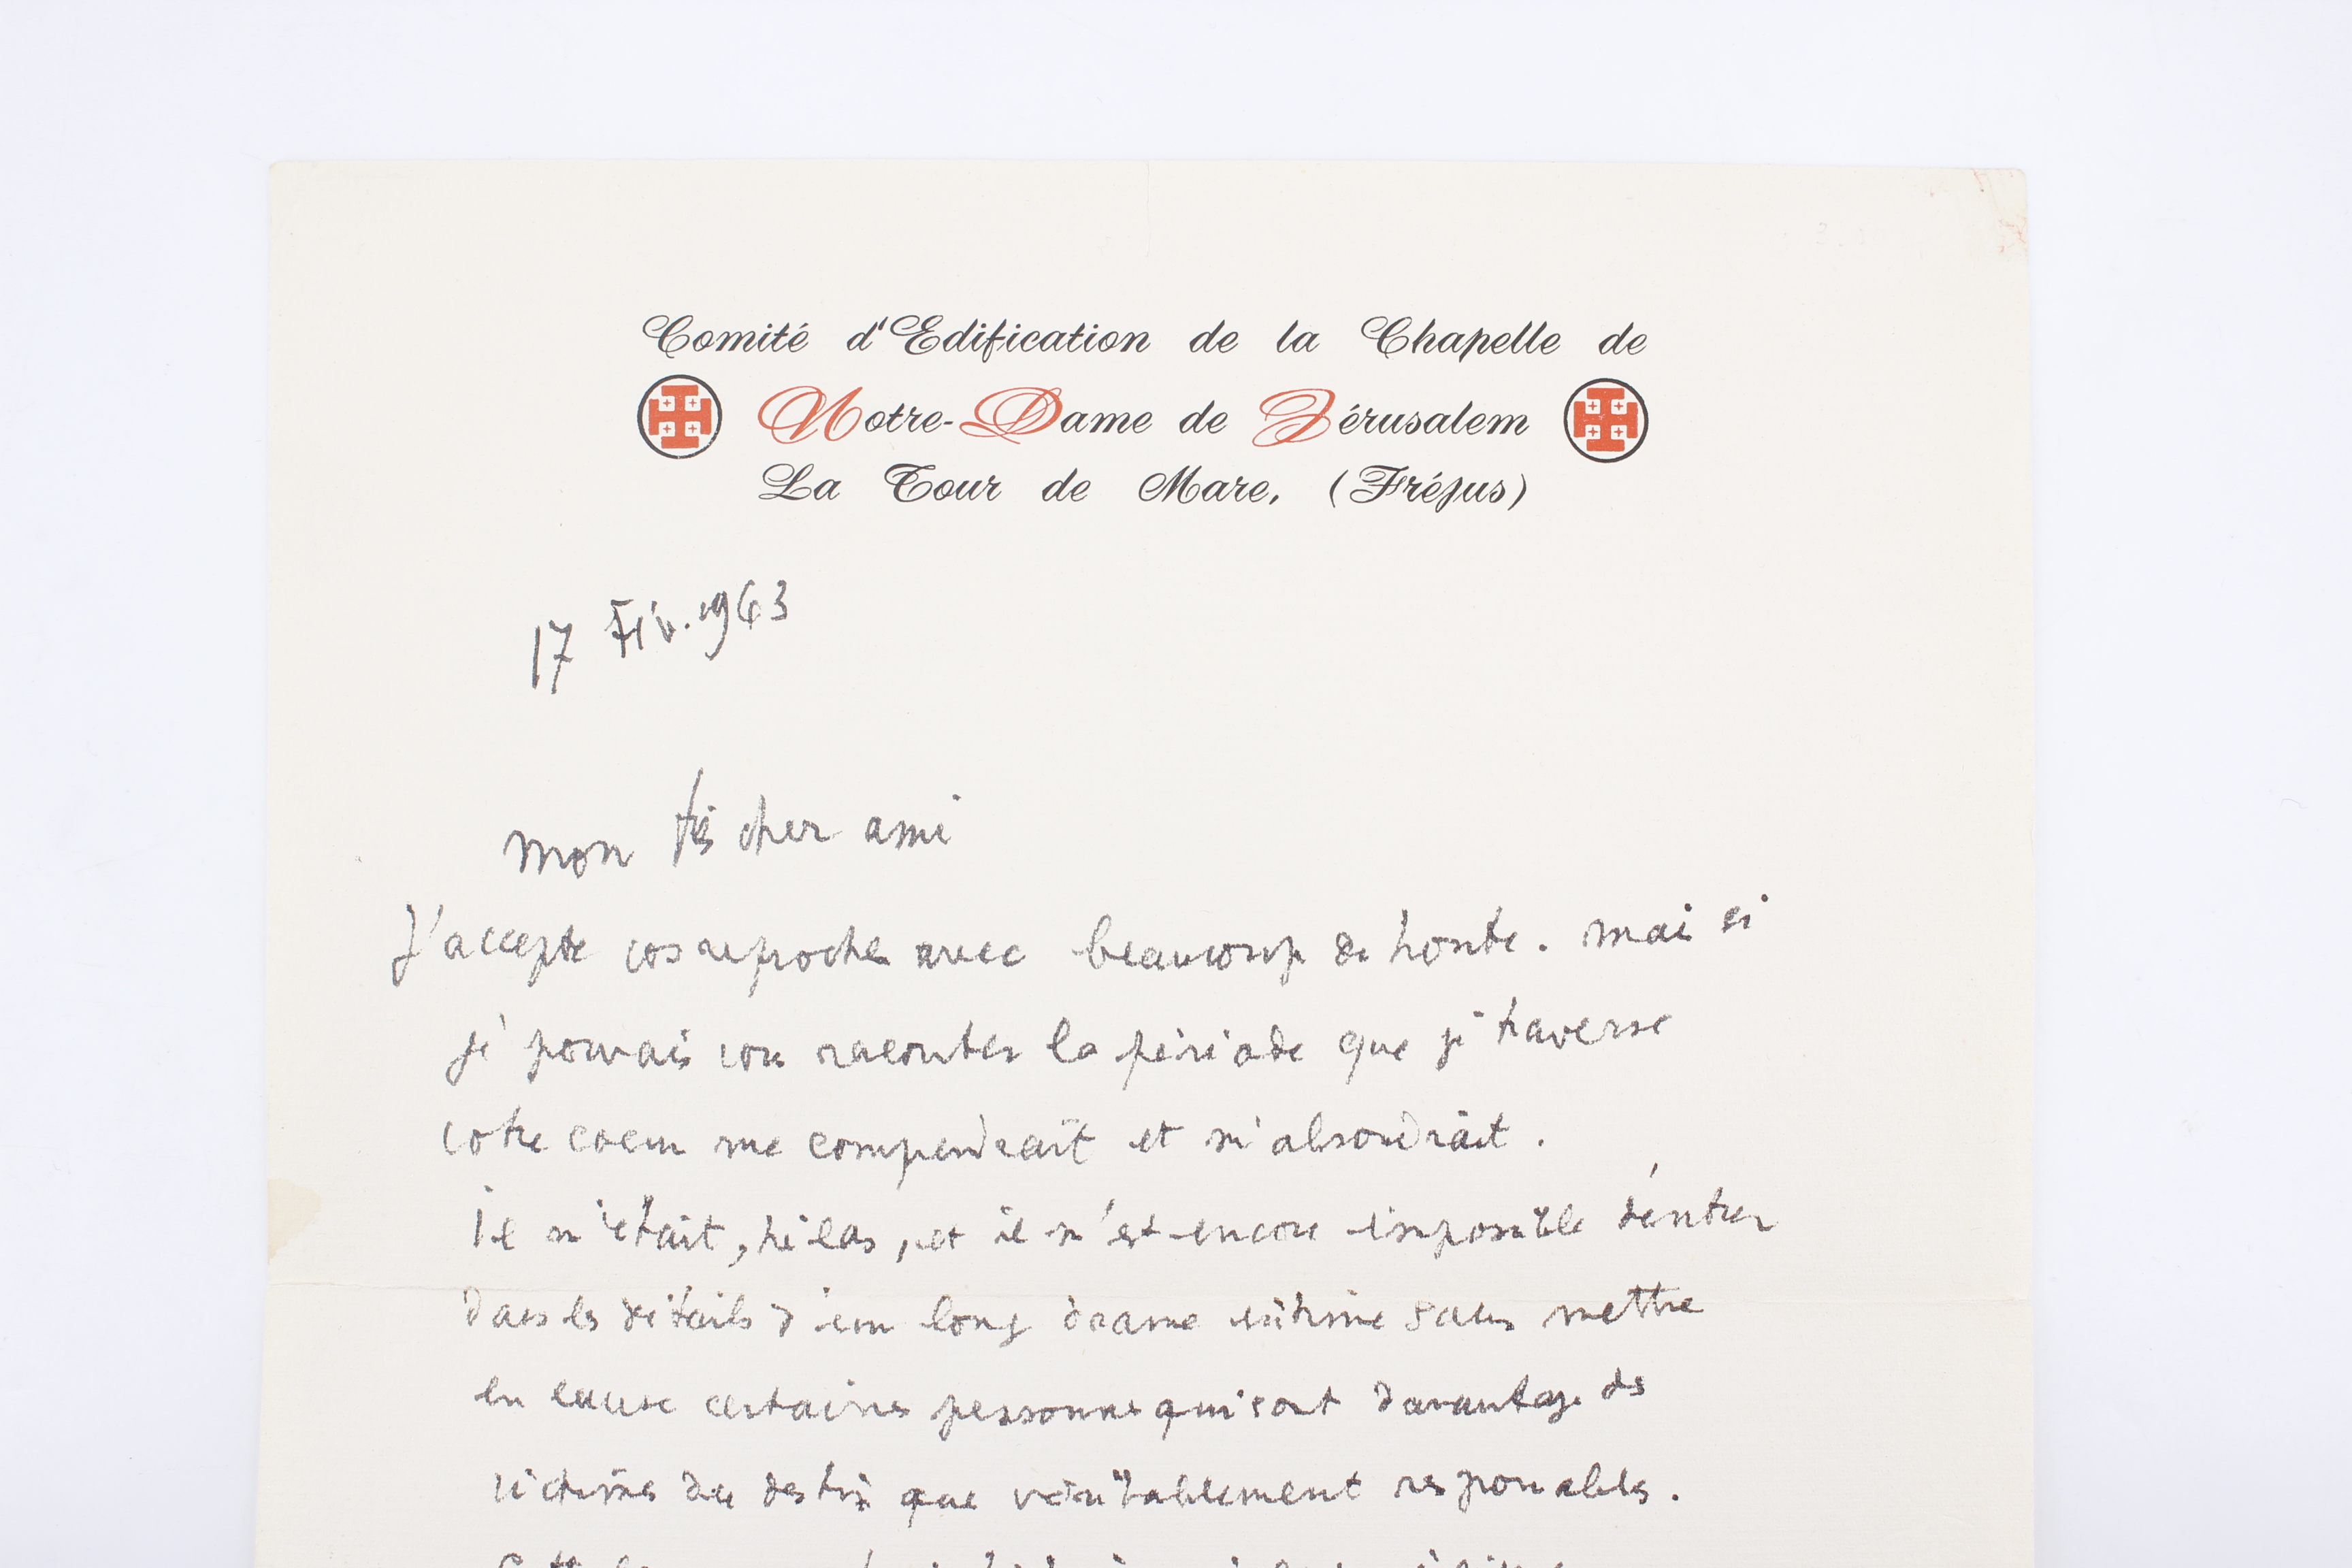 Comité d'Edification de la Chapelle de
Notre-Dame de Jérusalem
La Tour de Mare, (Fréjus)
17 Fév. 1963
Mon très cher ami
J'accepte vos reproches avec beaucoup de honte. Mais si
je pouvais vous raconter la période que je traverse
votre coeur me comprendrait et m'absoudrait.
Il m'était, hélas, et il m'est encore impossible d'entrer
dans les détails d'un long drame intime sans mettre
en cause certaines personnes qui sont davantage des
victimes du destin que véritablement responsables.